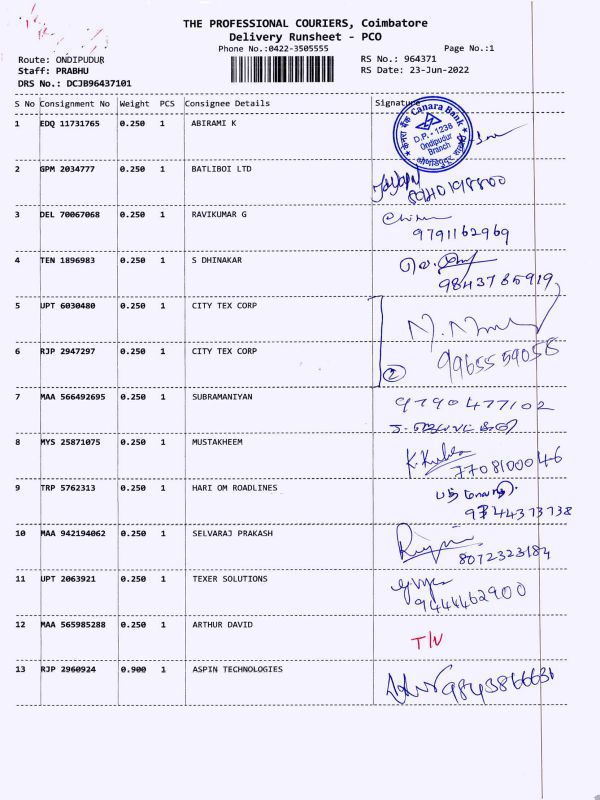 THE PROFESSIONAL COURIERS, Coimbatore
Delivery Runsheet - PCO
Phone No.:0422-3505555
Page No.:1
Route: ONDIPUDUR
RS No.: 964371
Staff: PRABHU
RS Date: 23-Jun-2022
DRS No.: DCJB96437101
S No Consignment No Weight PCS Consignee Details Signature
1 EDQ 11731765 0.250 1 ABIRAMI K
Canara Bank
D.P.- 1238
Ondipudur
Branch
2 GPM 2034777 0.250 1 BATLIBOI LTD
3 DEL 70067068 0.250 1 RAVIKUMAR G
9791162969
4 TEN 1896983 0.250 1 S DHINAKAR
9843785919
5 UPT 6030480 0.250 1 CITY TEX CORP
6 RJP 2947297 0.250 1 CITY TEX CORP
9965559058
2
7 MAA 566492695 0.250 1 SUBRAMANIYAN
9790477102
8 MYS 25871075 0.250 1 MUSTAKHEEM
7708100046
9 TRP 5762313 0.250 1 HARI OM ROADLINES
10 MAA 942194062 0.250 1 SELVARAJ PRAKASH
8072323184
11 UPT 2063921 0.250 1 TEXER SOLUTIONS
9444462900
12 MAA 565985288 0.250 1 ARTHUR DAVID
13 RJP 2960924 0.900 1 ASPIN TECHNOLOGIES